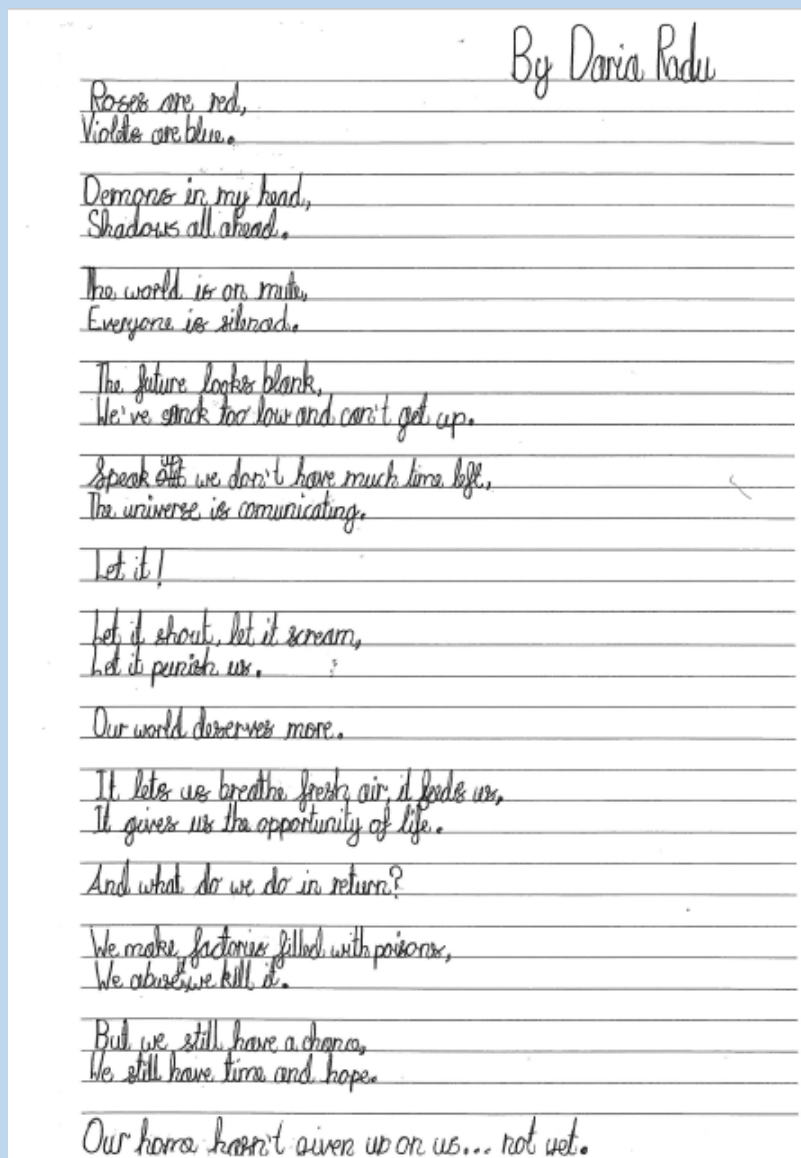 By Daria Radu
Roses are red,
Violets are blue.
Demons in my head,
Shadows all ahead.
The world is on mute,
Everyone is silenced.
The future looks blank,
We've sunck too low and can't get up.
Speak we don't have much time left,
The universe is comunicating.
Let it!
Let it shout, let it scream,
Let it punish us.
Our world deserves more.
It lets us breathe fresh air, it feeds us,
It gives us the opportunity of life.
And what do we do in return?
We make factories filled with poisons,
We abuse, we kill it.
But we still have a chance,
We still have time and hope.
Our home hasn't given up on us... not yet.